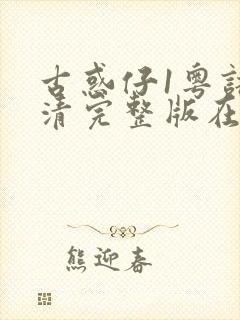 古惑仔1粤语
清完整版在
熊迎春